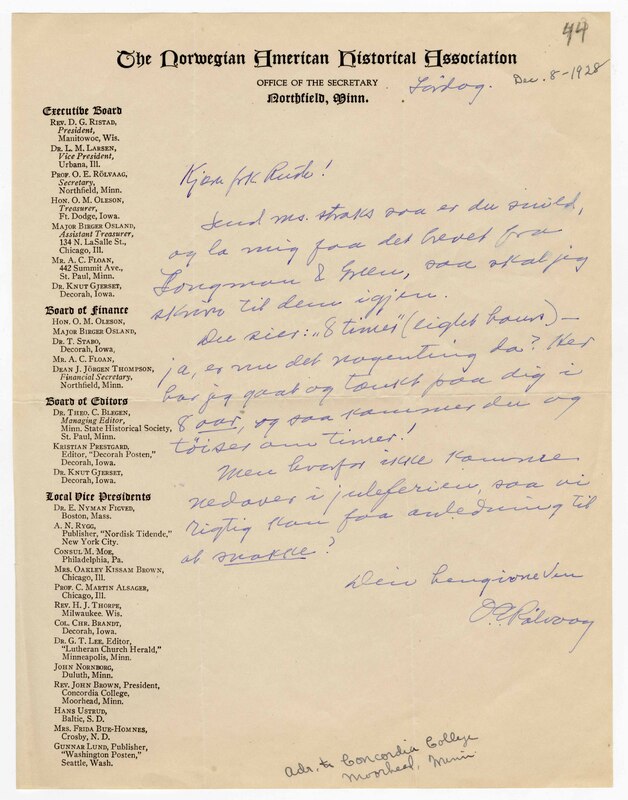 44
The Norwegian American Historical Association
OFFICE OF THE SECRETARY
Northfield, Minn.
Lördag.
Dec. 8-1928
Executive Board
REV. D. G. RISTAD,
President,
Manitowoc, Wis.
DR. L. M. LARSEN,
Vice President,
Urbana, Ill.
PROF. O. E. RÖLVAAG,
Secretary,
Northfield, Minn.
HON. O. M. OLESON,
Treasurer,
Ft. Dodge, Iowa.
MAJOR BIRGER OSLAND,
Assistant Treasurer,
134 N. LaSalle St.,
Chicago, Ill.
MR. A. C. FLOAN,
442 Summit Ave.,
St. Paul, Minn.
DR. KNUT GJERSET,
Decorah, Iowa.
Board of Finance
HON. O. M. OLESON,
MAJOR BIRGER OSLAND,
DR. T. STABO,
Decorah, Iowa,
MR. A. C. FLOAN,
DEAN J. JÖRGEN THOMPSON,
Financial Secretary,
Northfield, Minn.
Board of Editors
DR. THEO. C. BLEGEN,
Managing Editor,
Minn. State Historical Society,
St. Paul, Minn.
KRISTIAN PRESTGARD,
Editor, "Decorah Posten,"
Decorah, Iowa.
DR. KNUT GJERSET,
Decorah, Iowa.
Local Vice Presidents
DR. E. NYMAN FIGVED,
Boston, Mass.
A. N. RYGG,
Publisher, "Nordisk Tidende,"
New York City.
CONSUL M. MOE,
Philadelphia, Pa.
MRS. OAKLEY KISSAM BROWN,
Chicago, Ill.
PROF. C. MARTIN ALSAGER,
Chicago, Ill.
REV. H. J. THORPE,
Milwaukee, Wis.
COL. CHR. BRANDT,
Decorah, Iowa.
DR. G. T. LEE, Editor,
"Lutheran Church Herald,"
Minneapolis, Minn.
JOHN NORNBORG,
Duluth, Minn.
REV. JOHN BROWN, President,
Concordia College,
Moorhead, Minn.
HANS USTRUD,
Baltic, S. D.
MRS. FRIDA BUE-HOMNES,
Crosby, N. D.
GUNNAR LUND, Publisher,
"Washington Posten,"
Seattle, Wash.
Kjære frk Rude!
Send ms. straks saa er du snild,
og la mig faa det brevet fra
Longman & Green, saa skal jeg
skrive til dem igjen.
Du sier: „8 timer" (eight hours) –
ja, er nu det nogenting da? Her
har jeg gaat og tænkt paa dig i
8 aar, og saa kommer du og
töiser om timer!
Men hvorfor ikke komme
nedover i juleferien, saa vi
rigtig kan faa anledning til
at snakke?
Din hengivne Ven
O E Rölvaag
adr. to Concordia College
Moorhead, Minn